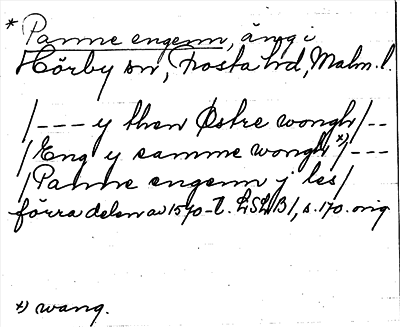 * Panne engenn, äng i
Hörby sn, Frosta hd, Malm. l.
/--- y then Østre wongh /--
/ Eng y samme wongh *)/---
/ Panne engenn j les /
förra delen av 1570-t. LSLB 1, s. 170. orig
*) wang.